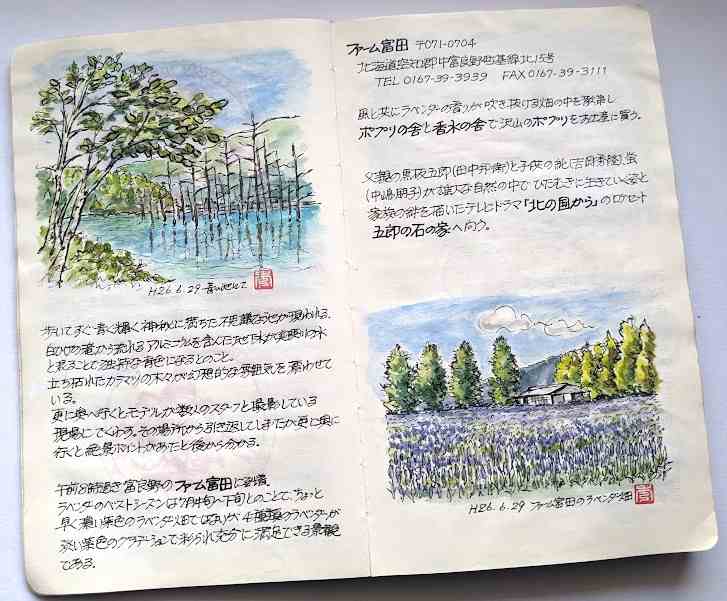 H26.6.29 青い池にて
歩いてすぐ青く輝く神秘に満ちた不思議な池が現われる。
白ひげの滝から流れるアルミニウムを含んだ地下水が美瑛川の水
と混ることで独特な青色になるとのこと。
立ち枯れたカラマツの木々が幻想的な雰囲気を漂わせて
いる。
更に奥へ行くとモデルか数人のスタッフと撮影している
現場にでくわす。その場所から引き返してしまったが更に奥に
行くと絶景ポイントがあったと後から分かる。
午前8時過ぎ富良野のファーム富田に到着。
ラベンダーのベストシーズンは7月中旬〜下旬とのことで、ちょっと
早く濃い紫色のラベンダー畑ではないが4種類のラベンダーが
淡い紫色のグラデーションで彩られ充分に満足できる景観
である。
ファーム富田 〒071-0704
北海道空知郡中富良野町基線北15号
TEL 0167-39-3939 FAX 0167-39-3111
風と共にラベンダーの香りが吹き抜ける畑の中を散策し
ポプリの舎と香水の舎で沢山のポプリをお土産に買う。
父親の黒板五郎(田中邦衛)と子供の純(吉岡秀隆)、蛍
(中嶋朋子)が雄大な自然の中でひたむきに生きていく姿と
家族の絆を描いたテレビドラマ「北の国から」のロケセット
五郎の石の家へ向う。
H26.6.29 ファーム富田のラベンダー畑